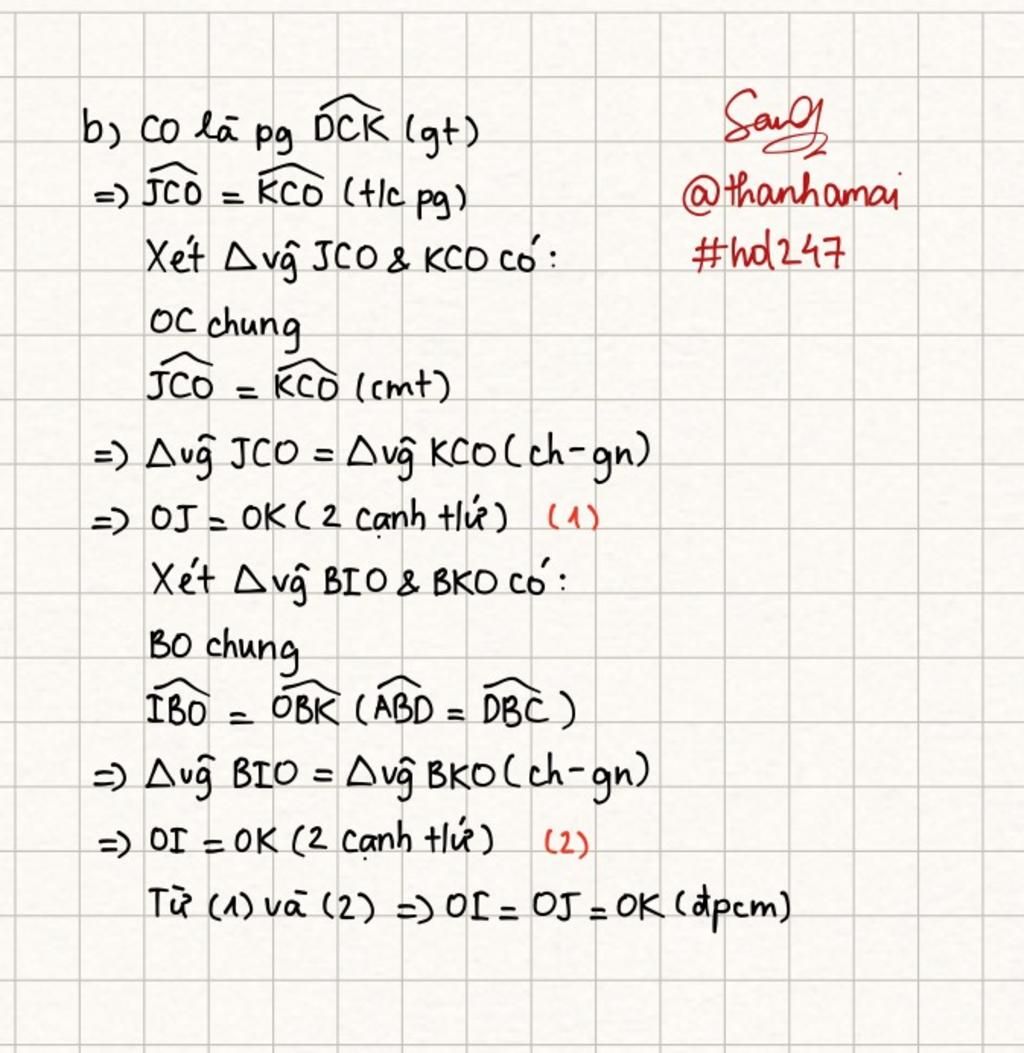 b) CO là pg \widehat{DCK} (gt)
=> \widehat{JCO} = \widehat{KCO} (t/c pg)
Xét Δvg̃ JCO & KCO có:
OC chung
\widehat{JCO} = \widehat{KCO} (cmt)
=> Δvg̃ JCO = Δvg̃ KCO (ch-gn)
=> OJ = OK (2 cạnh t/ứ) (1)
Xét Δvg̃ BIO & BKO có:
BO chung
\widehat{IBO} = \widehat{OBK} (\widehat{ABD} = \widehat{DBC})
=> Δvg̃ BIO = Δvg̃ BKO (ch-gn)
=> OI = OK (2 cạnh t/ứ) (2)
Từ (1) và (2) => OI = OJ = OK (đpcm)
@thanhamai
#hd247